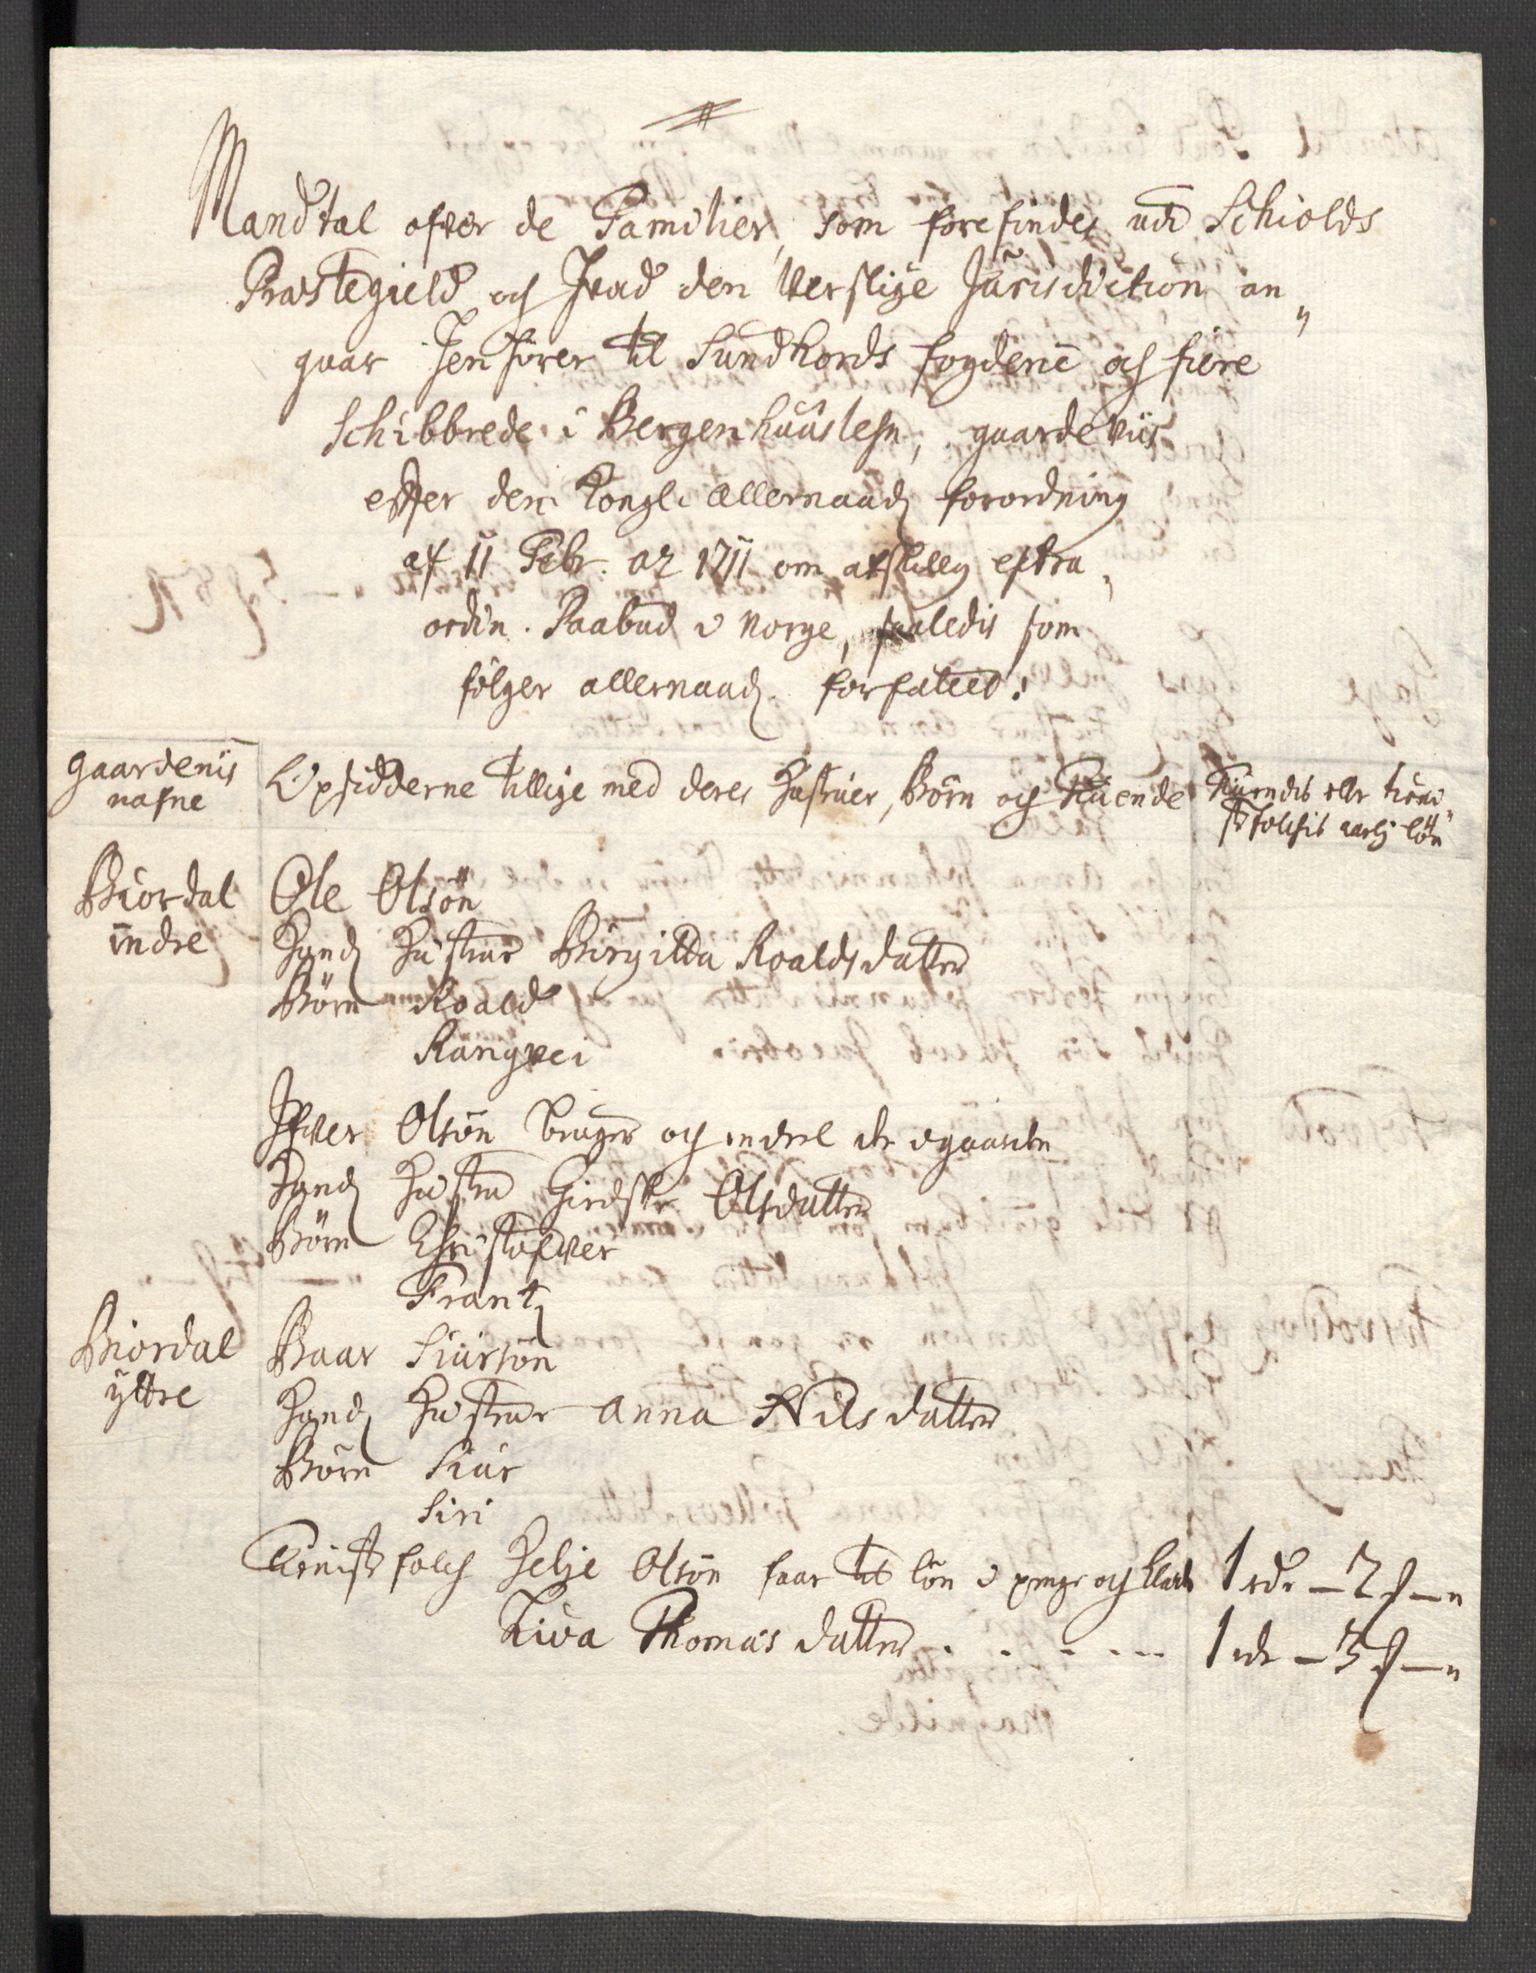 Mandtal ofver de Familier, som forefindes udi Schiolds
Præstegield, och hvad den Verslige Jurisdiction an„
gaar henhörer til Sundhords fogderie och fiere
Schibbrede i Bergenhuuslehn, gaardeviis
efter den Kongl: allernaad: forordning
af 11 Febr. a: 1711 om extra
ordin. Paabud i Norge, saaledis som
fölger allernaad: forfatted:
gaardenis
nafne
Opsidderne tillige med deres Hustruer, Börn och tiuende
tiuendis eller tieni„
ste folchis aarl: lön
Biordal
indre
Ole Olsön
Hands Hustrue Birgitta Roalds datter
Börn Roald
Rangvei
Ifver Olsön bruger och en deel der i gaarden
Hands Hustru Olsdatter
Börn Christofver
Frantz
Biordal
yttre
Baar Siursön
Hands Hustrue Anna Nilsdatter
Börn Siur
Siri
Tienist folch Helje Olsön faar til lön i penge och klæder 1 rdr – 2 s – „
Thomas datter . . . . - - - 1 rdr – 3 s – „